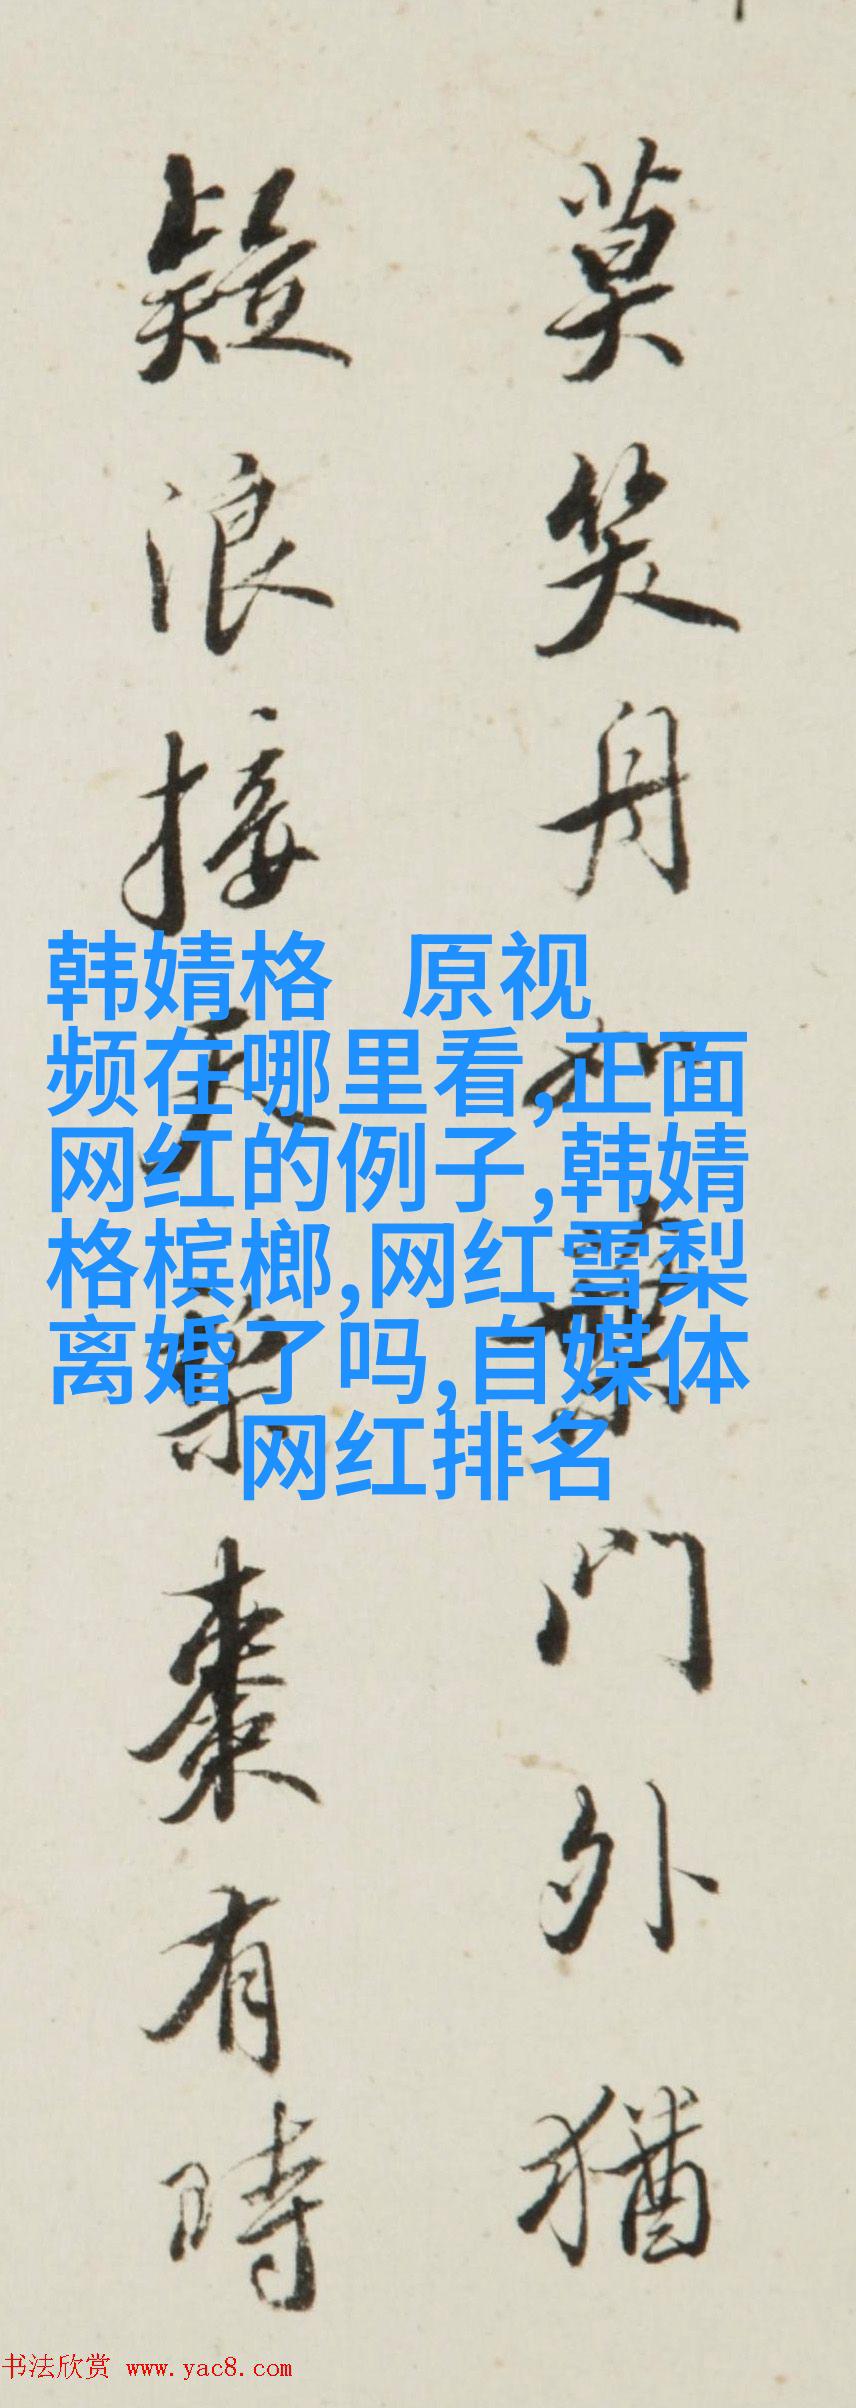 莫笑舟如葉門外猶
疑浪接天槃棗有時
韩婧格 原视
频在哪里看,正面
网红的例子,韩婧
格槟榔,网红雪梨
离婚了吗,自媒体
网红排名
书法欣赏 www.yac8.com